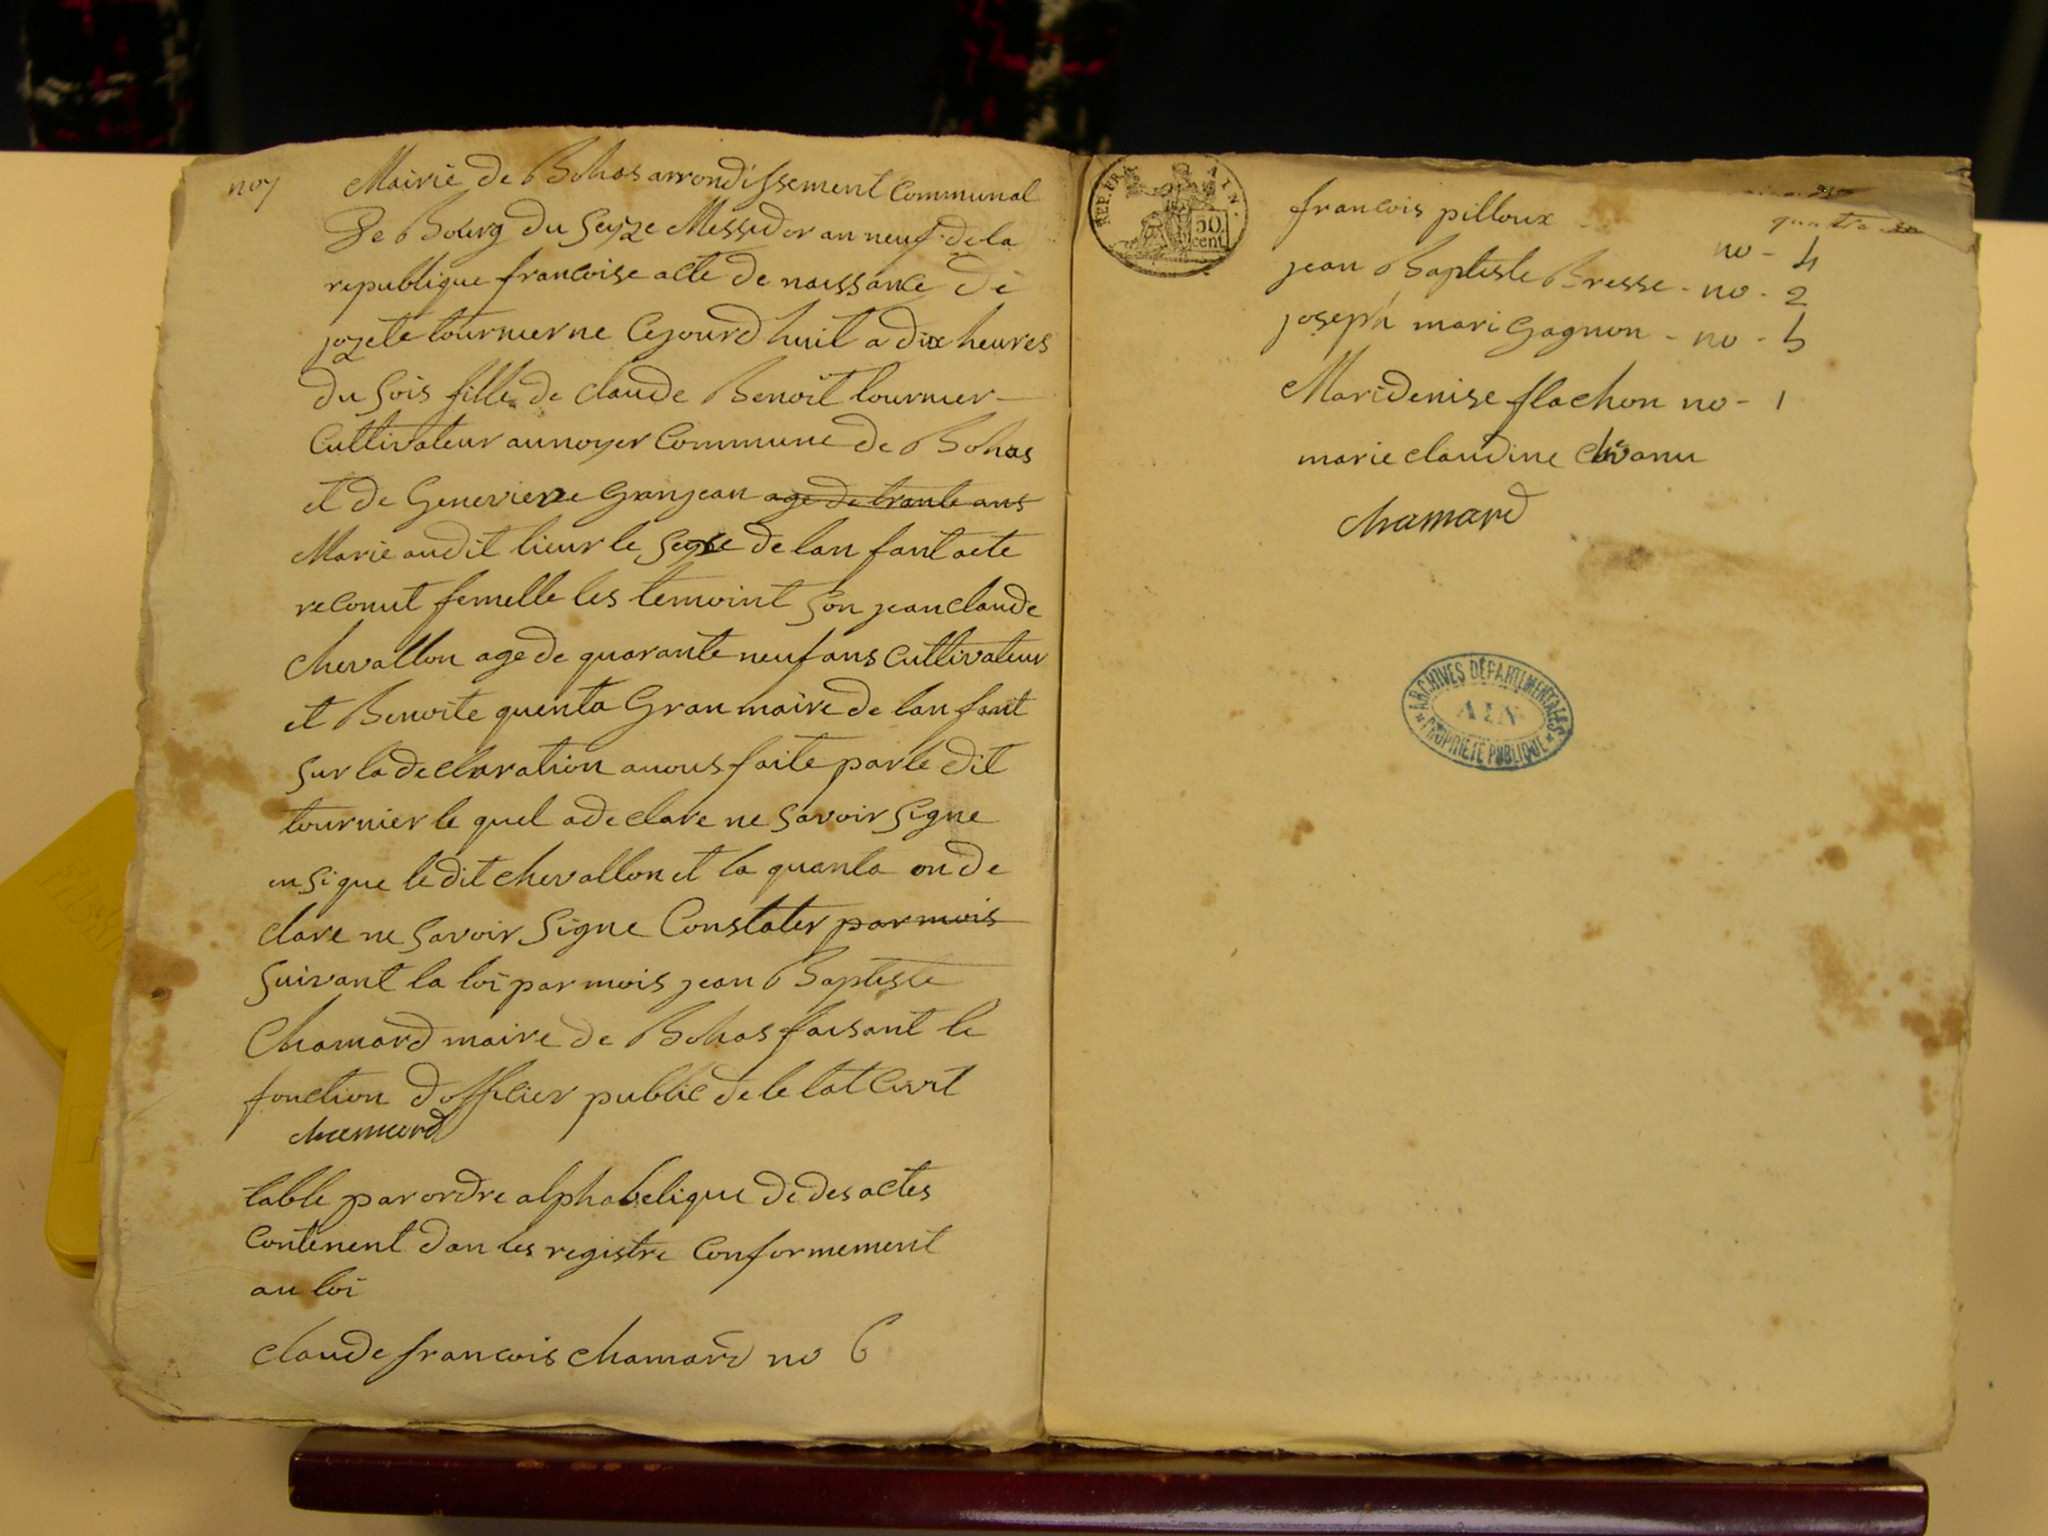 no 7
Mairie de Bohas arrondissement Communal
de Bourg du Seyze Messidor an neuf de la
republique francoise acte de naissance de
jozete tournier ne Cejourd huit a dix heures
du sois fille de claude Benoit tournier
Cultivateur au noyer Commune de Bohas
et de Genevieve Granjean age de trante ans
Marie audit lieur le sexse de lan fant aete
reconut femelle les temoint son jean claude
chevallon age de quarante neuf ans Cultivateur
et Benoite quenta Gran maire de lan fant
sur la declaration anous faite par le dit
tournier le quel a declare ne savoir signe
en sigue le dit chevallon et la quanta on de
clare ne savoir signe Constater par mois
suivant la loi par mois jean Baptiste
Chamard maire de Bohas faisant le
fonction dofficier public de le tat Civil
chamard
table par ordre alphabetique de des actes
Contenent dan les registre Conformement
au loi
claude francois chamard no 6
REP. FRA.
AIN.
50
cent.
quatre
francois pilloux no - 4
jean Baptiste Bresse - no - 2
joseph mari Gagnon - no - 5
Mari denise flachon no - 1
marie claudine
chamard
ARCHIVES DÉPARTEMENTALES
AIN
PROPRIÉTÉ PUBLIQUE